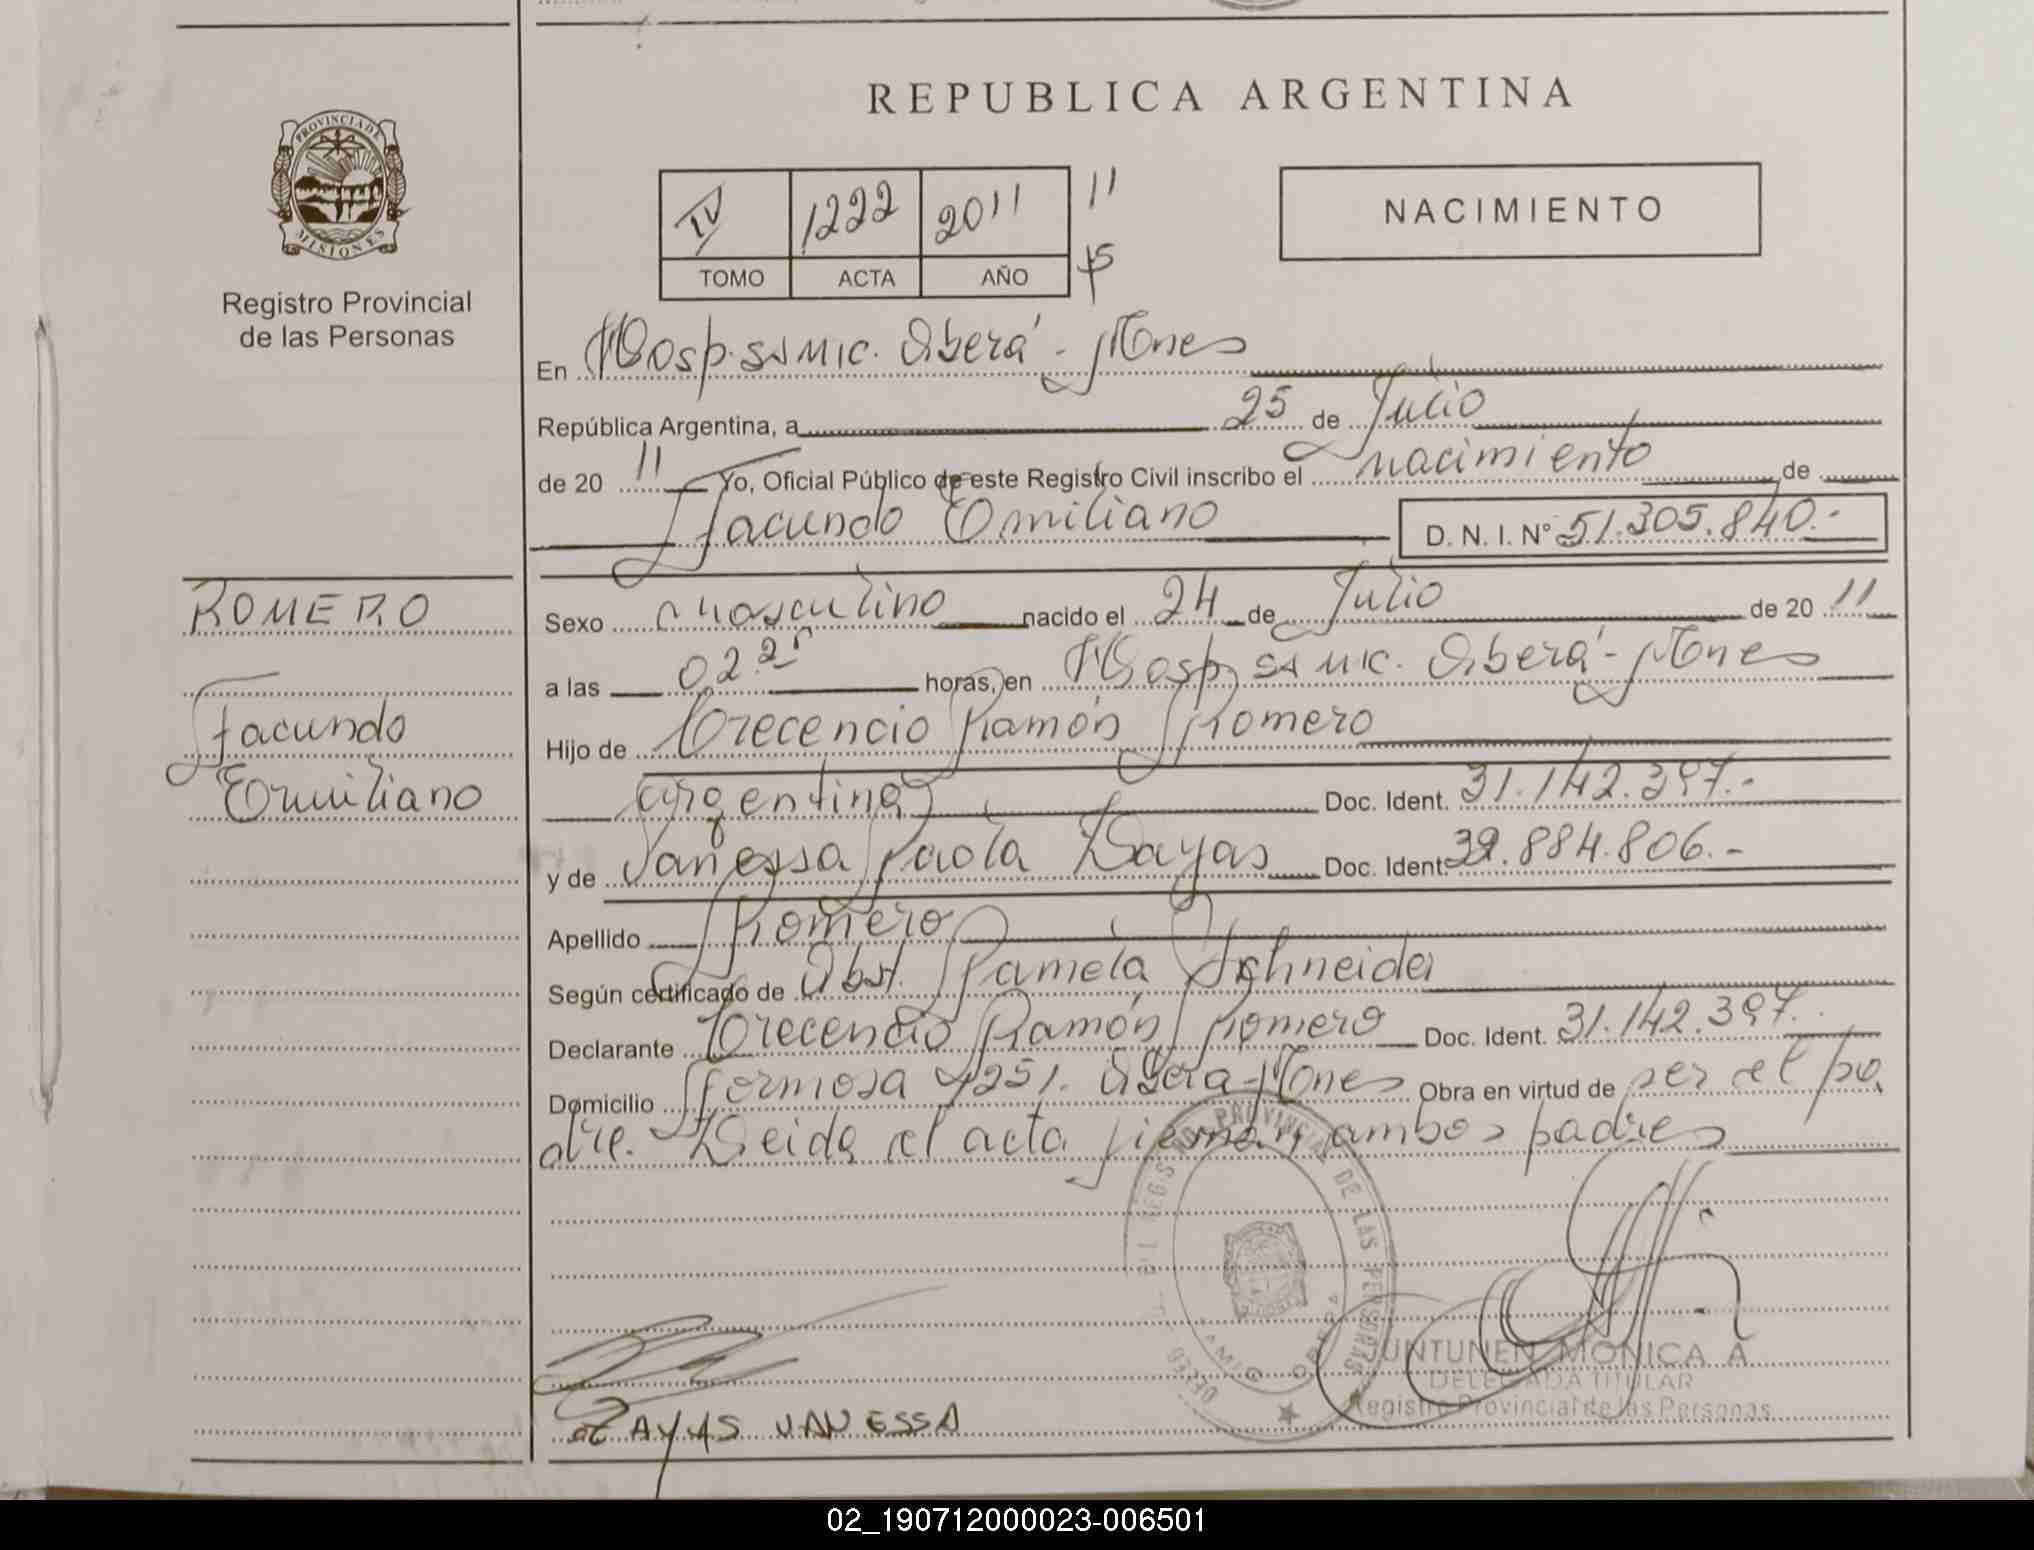 PROVINCIA DE
MISIONES
Registro Provincial
de las Personas
ROMERO
Facundo
Emiliano
REPUBLICA ARGENTINA
IV 1222 2011 11
TOMO ACTA AÑO 15
NACIMIENTO
En Hosp. SAMIC. Oberá - Mnes
República Argentina, a 25 de Julio
de 20 11 Yo, Oficial Público de este Registro Civil inscribo el nacimiento de
Facundo Emiliano D. N. I. Nº 51.305.840.-
Sexo masculino nacido el 24 de Julio de 20 11
a las 02.25 horas, en Hosp SAMIC. Oberá - Mnes
Hijo de Crecencio Ramón Romero
argentina Doc. Ident. 31.142.397.-
y de Vanessa Paola Zayas Doc. Ident. 884.806.-
Apellido Romero
Según certificado de Obst. Pamela Schneider
Declarante Crecencio Ramón Romero Doc. Ident. 31.142.397.
Domicilio Formosa 1251. Oberá - Mnes Obra en virtud de ser el pa
dre. Leida el acta firman ambos padres
REGISTRO PROVINCIAL DE LAS PERSONAS
ZAYAS VANESSA
JUNTUNEN MONICA A
DELEGADA TITULAR
Registro Provincial de las Personas
02_190712000023-006501